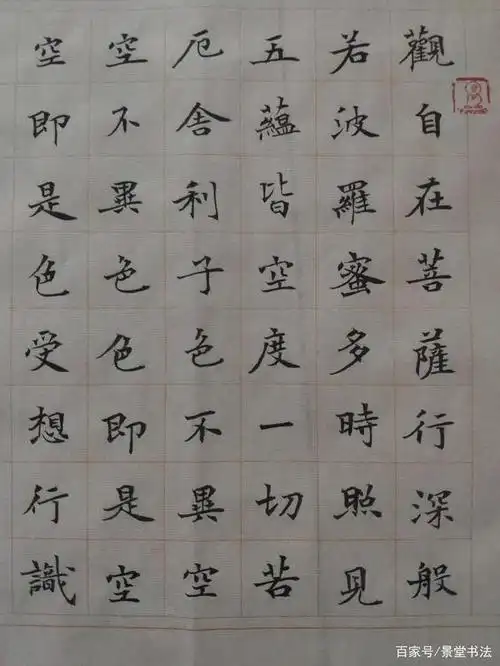 觀自在菩薩行深般
若波羅蜜多時照見
五蘊皆空度一切苦
厄舍利子色不異空
空不異色色即是空
空即是色受想行識
百家号/景堂书法